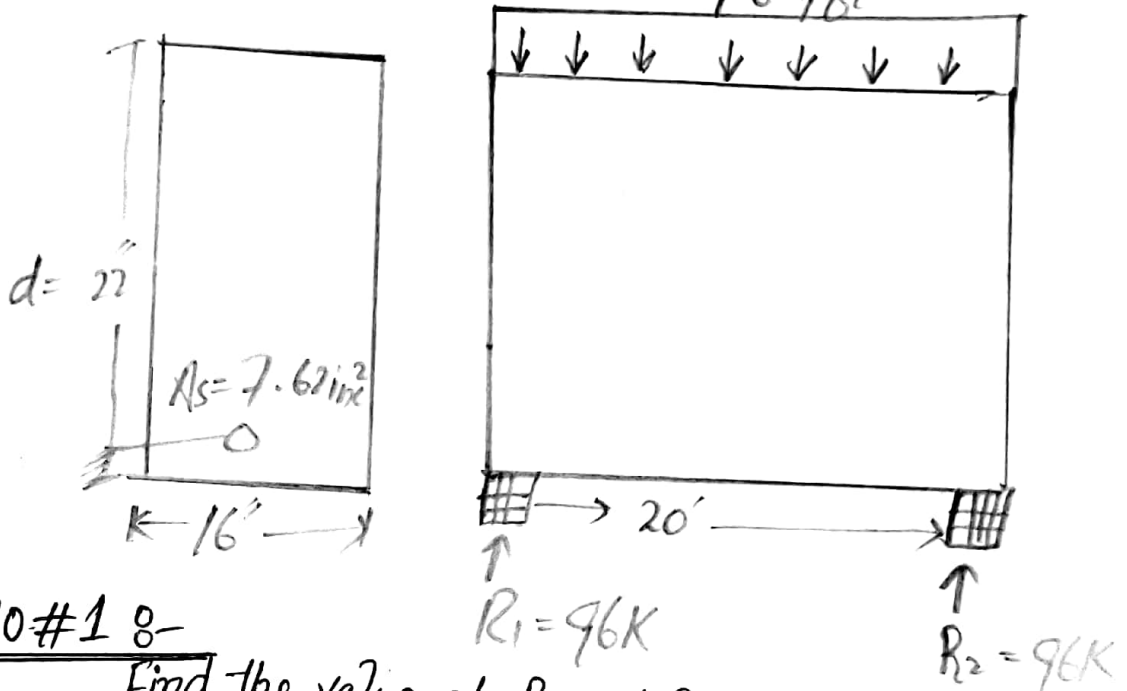 d= 22"
As= 7.62in²
16"
20'
R₁ = 96K
R₂ = 96K
0#1 :-
Find the value of